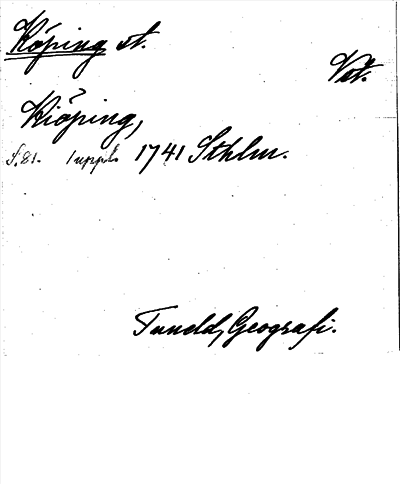 Köping st.
Vst.
Kiöping,
s. 81. 1 uppl. 1741 Sthlm.
Tuneld, Geografi.